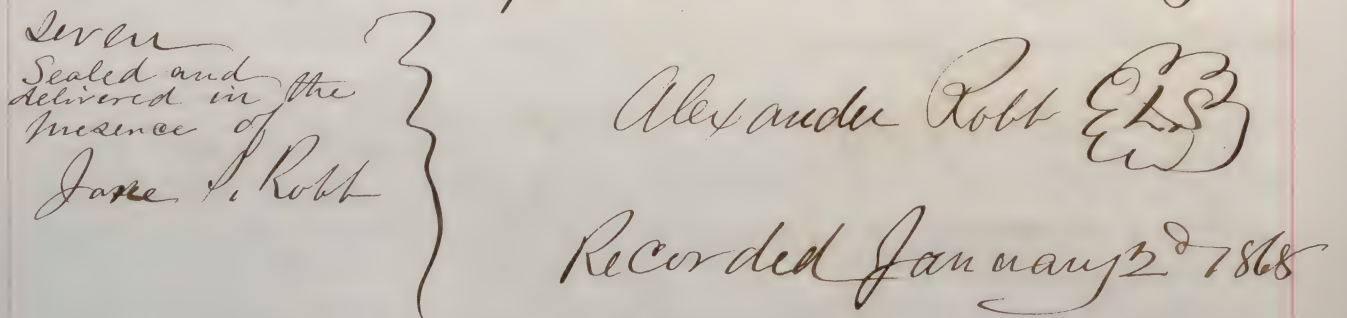 seven
Sealed and
delivered in the
presence of
Jane P. Robb
Alexander Robb L.S
Recorded January 2d 1868